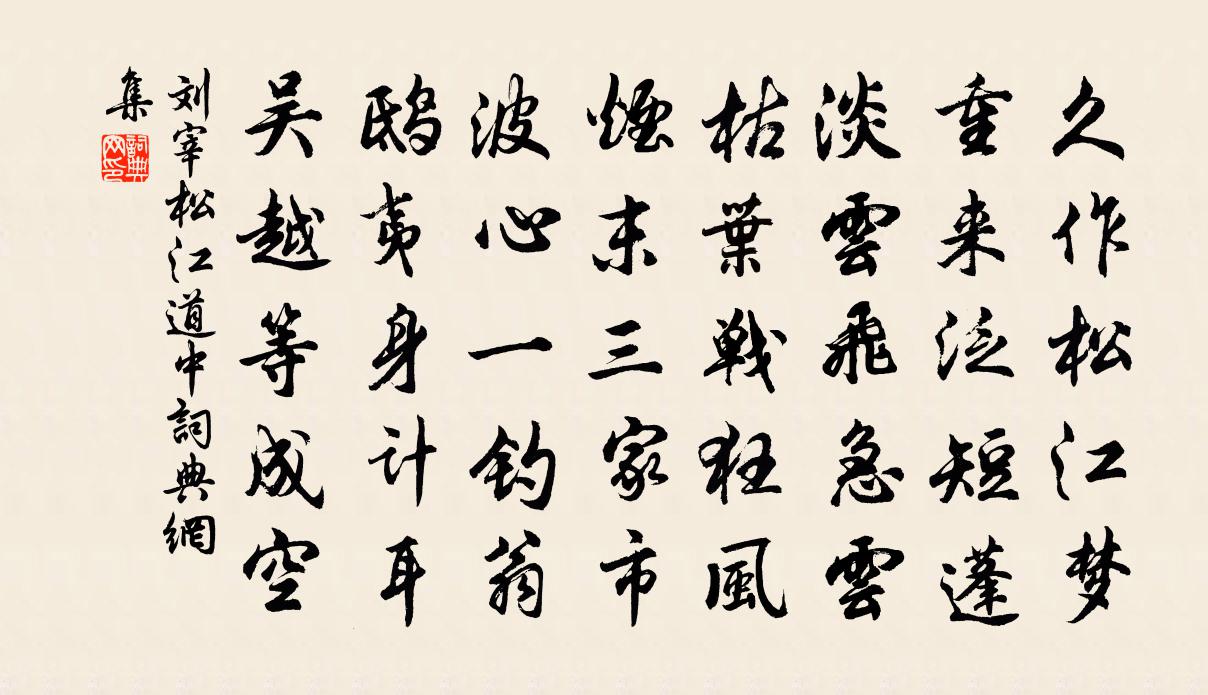 久作松江梦
重来泛短蓬
淡雲飛急雲
枯葉戦狂風
煙末三家市
波心一钓翁
鸱夷身计耳
吴越等成空
刘宰松江道中詞典網
集
詞典
网印